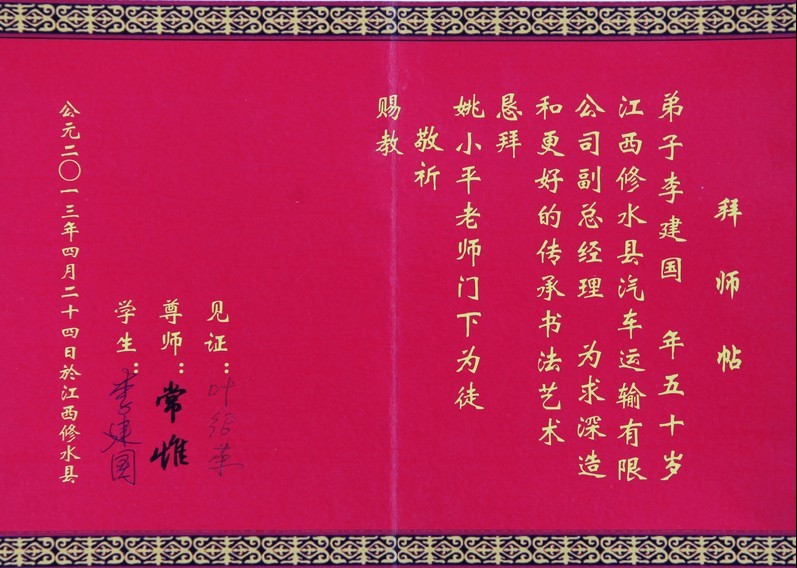 拜师帖
弟子李建国 年五十岁
江西修水县汽车运输有限
公司副总经理 为求深造
和更好的传承书法艺术
恳拜
姚小平老师门下为徒
敬祈
赐教
见证：叶绍革
尊师：常惟
学生：李建国
公元二〇一三年四月二十四日於江西修水县